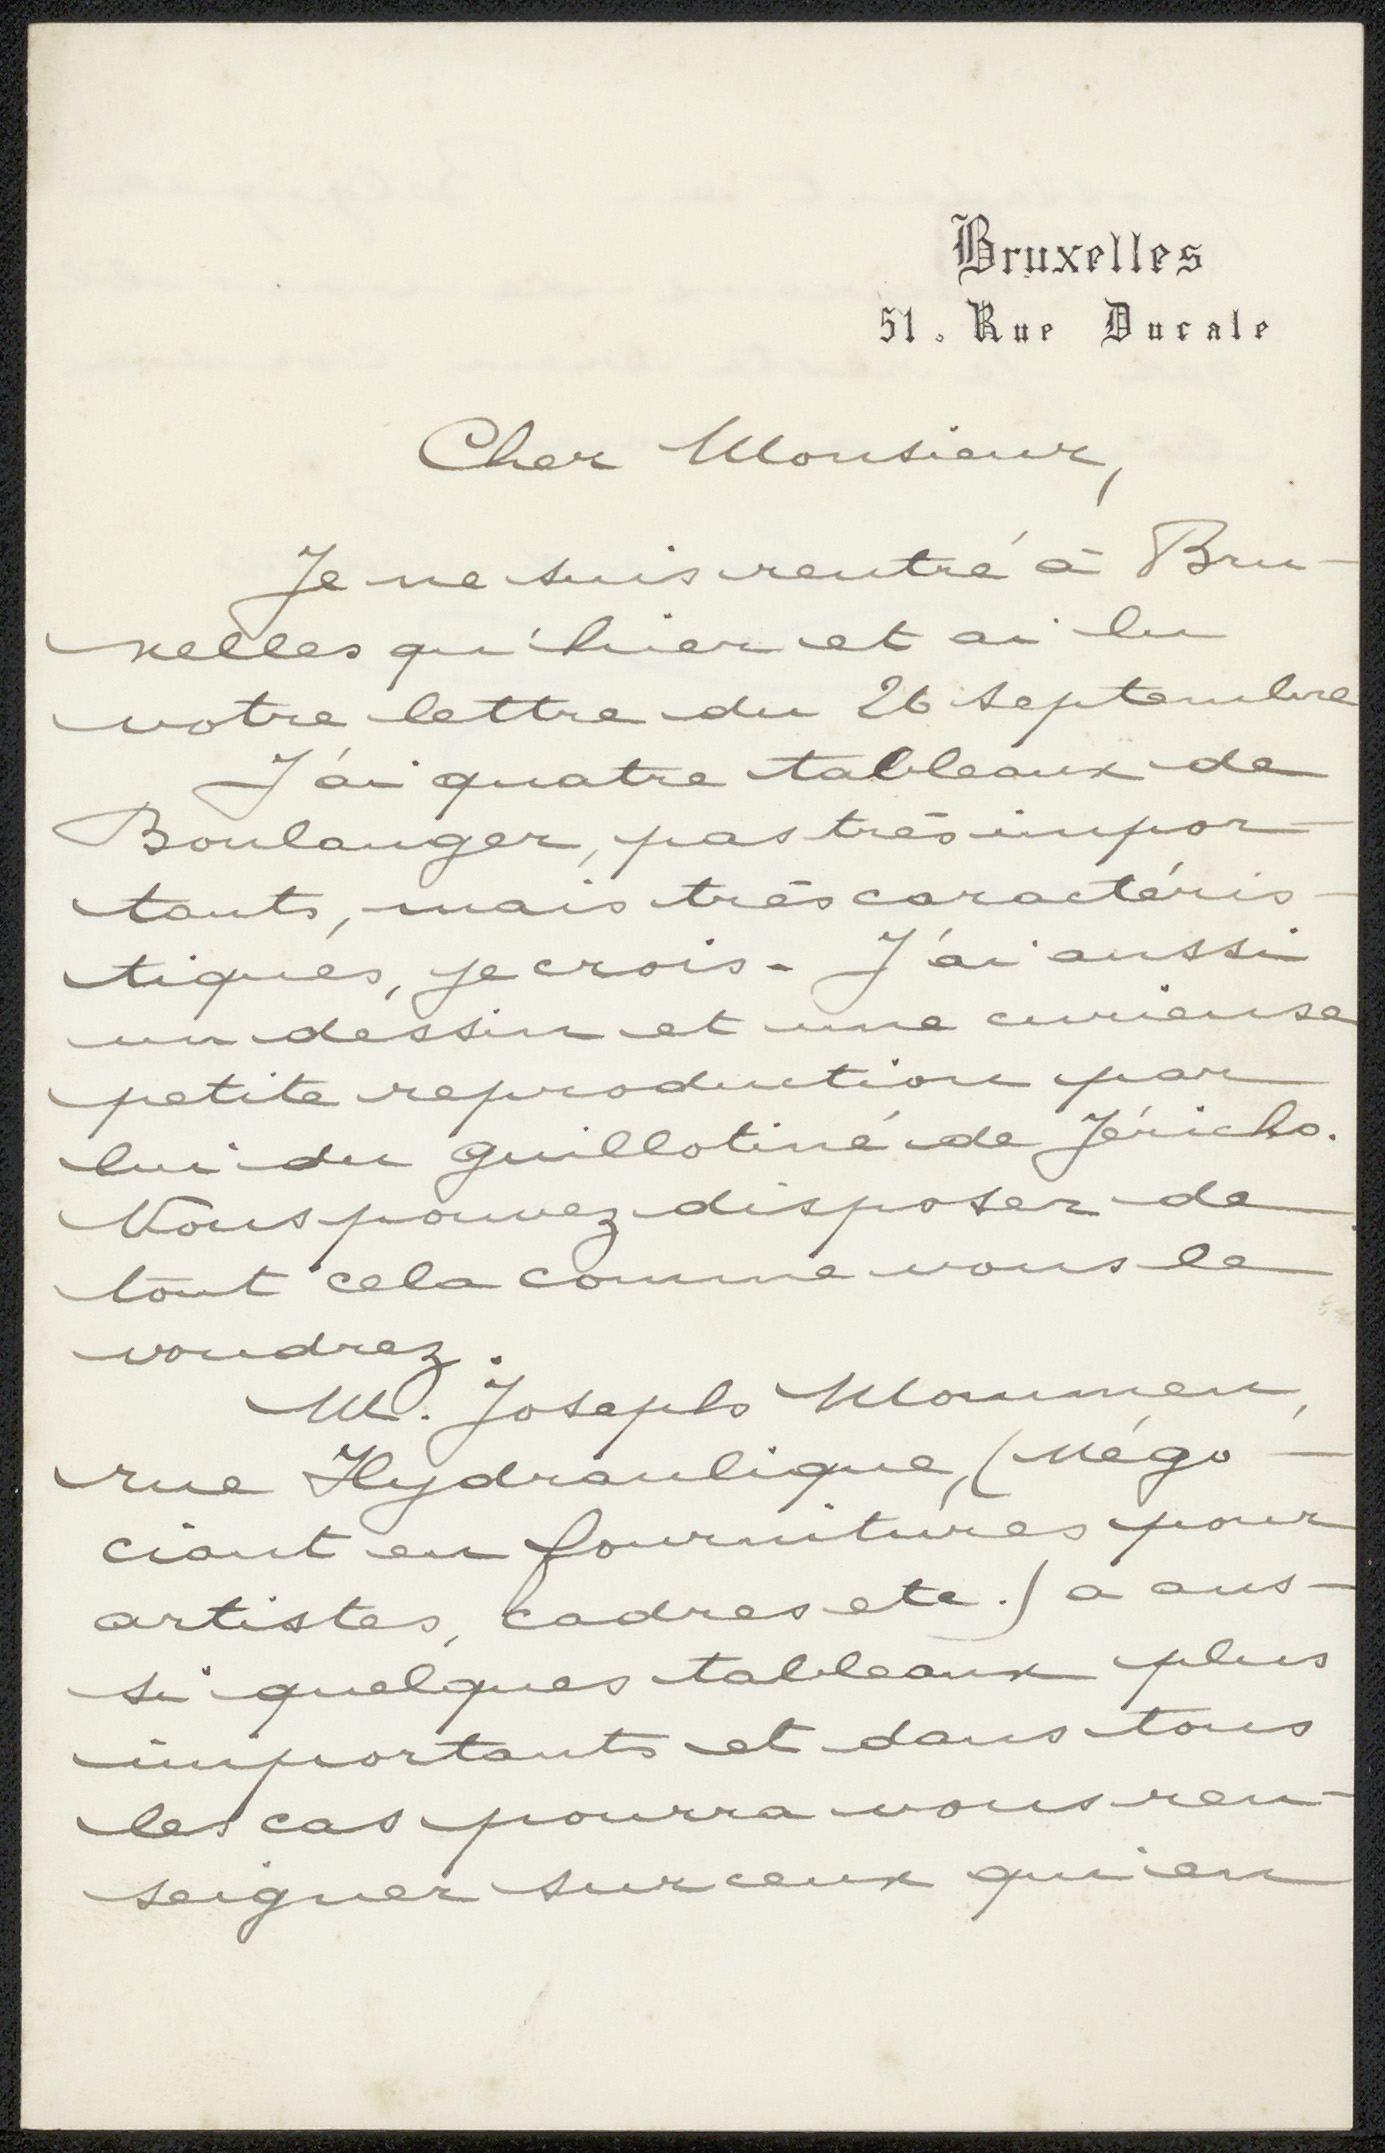 Bruxelles
51. Rue Ducale
Cher Monsieur,
Je ne suis rentré à Bru-
xelles qu'hier et ai lu
votre lettre du 26 septembre
J'ai quatre tableaux de
Boulanger, pas très impor-
tants, mais très caractéris-
tiques, je crois. J'ai aussi
un dessin et une curieuse
petite reproduction par
lui du guillotiné de Jéricho.
Vous pouvez disposer de
tout cela comme vous le
voudrez.
M. Joseph Mommen,
rue Hydraulique, (Négo-
ciant en fournitures pour
artistes, cadres etc.) a aus-
si quelques tableaux plus
importants et dans tous
les cas pourra vous ren-
seigner sur ceux qui en